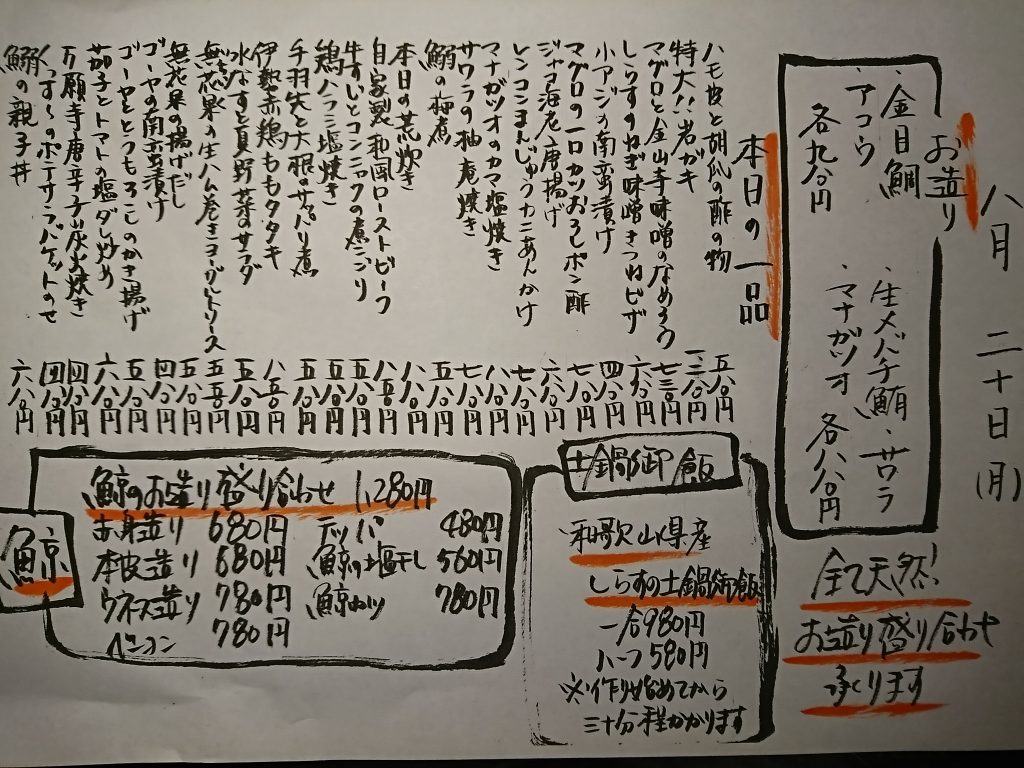 八月 二十日(月)
お造り
・金目鯛 ・生メバチ鮪・サワラ
・アコウ ・マナガツオ
各九八〇円 各八八〇円
全て天然!
お造り盛り合わせ
承ります
本日の一品
ハモ皮と胡瓜の酢の物 五八〇円
特大!!岩ガキ
マグロと金山寺味噌のなめろう 七三〇円
しらすのねぎ味噌きつねピザ 六八〇円
小アジの南蛮漬け 四八〇円
マグロの一口カツおろしポン酢 七八〇円
ジャコ海老唐揚げ 六八〇円
レンコンまんじゅうカニあんかけ 七八〇円
マナガツオのカマ塩焼き 八八〇円
サワラの柚庵焼き 七八〇円
鰯の梅煮 五八〇円
本日の煮炊き 八八〇円
自家製和風ローストビーフ 八五〇円
牛すじとコンニャクの煮こごり 五八〇円
鶏ハラミ塩焼き 五八〇円
手羽先と大根のサッパリ煮 五八〇円
伊勢赤鶏ももタタキ 八五〇円
水なすと夏野菜のサラダ 五八〇円
無花果の生ハム巻きヨーグルトソース 五五〇円
無花果の揚げだし 五八〇円
ゴーヤの南蛮漬け 四八〇円
ゴーヤととうもろこしのかき揚げ 五八〇円
茄子とトマトの塩ダレ炒め 六八〇円
万願寺唐辛子炭火焼き 四八〇円
ポテサラバケットのせ 四八〇円
鰯の親子丼 六八〇円
土鍋御飯
、和歌山県産
しらすの土鍋御飯
一合980円
ハーフ580円
※作り始めてから
三十分程かかります
鯨
鯨のお造り盛り合わせ 1,280円
赤身造り 680円 テッパ 480円
本皮造り 680円 鯨の塩干し 560円
ウネース造り 780円 鯨カツ 780円
ベーコン 780円